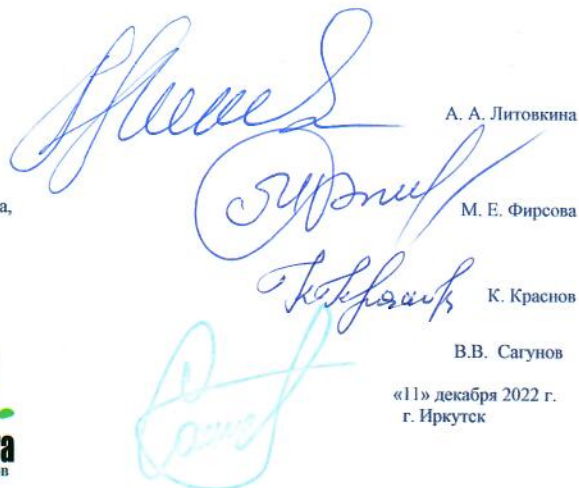 А. А. Литовкина
а,
М. Е. Фирсова
К. Краснов
В.В. Сагунов
«11» декабря 2022 г.
г. Иркутск
а
в